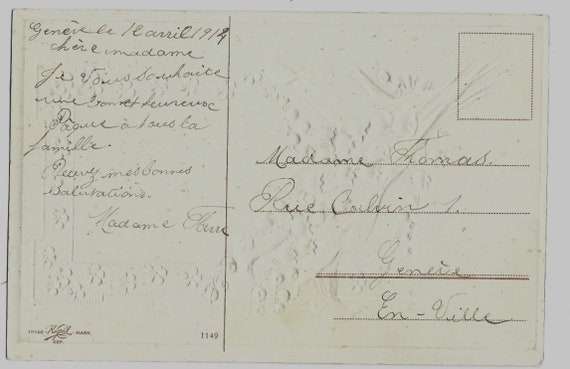 Genève le 12 avril 1914
chère madame
Je vous souhaite
une bonne et heureuse
Pâque à tous la
famille.
Recevez mes bonnes
salutations.
Madame
Madame Thomas.
Rue Calvin 1.
Genève
En-Ville
TRADE MARK.
DEP.
1149